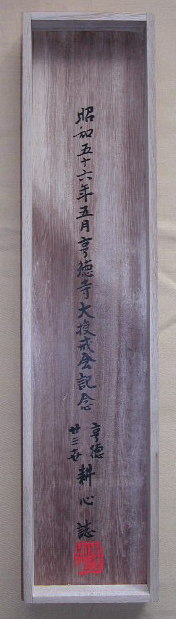 昭和五十六年五月亨徳寺大授戒会記念
亨徳
廿三世
耕心誌